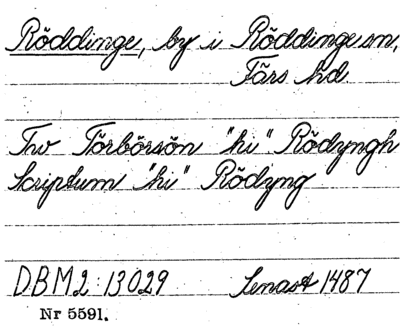 Röddinge, by i Röddinge sn,
Färs hd
Tuv Törbörsön "hi" Rödyngh
Scriptum "hi" Rödyng
DBM2:13029 Senast 1487
Nr 5591.